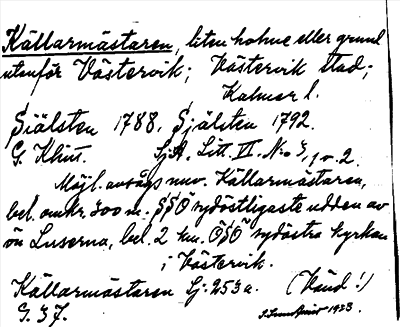 Källarmästaren, liten holme eller grund
utanför Västervik; Västervik stad;
Kalmar l.
Siälsten 1788. Själsten 1792.
G. Khut. Sj.A. Litt. VI. No 3, 1 o. 2.
Möjl. avsågs nuv. Källarmästaren,
bel. omkr. 300 m. SSÖ sydöstligaste udden av
ön Luserna, bel. 2 km. OSO sydöstra kyrkan
i Västervik.
Källarmästaren Gj: 253 a. (Vänd!)
G. 37. 1923